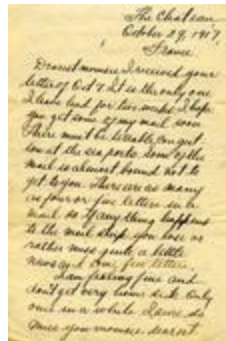 The Chateau
October 29, 1917,
France
Dearest momsie I received your
letter of Oct 7. It is the only one
I have had for two weeks. I hope
you get some of my mail soon
There must be
at the sea ports. Some of the
mail is almost bound not to
get to you. There are as many
as four or five letters in a
mail so if any thing happens
to the mail ship you lose or
rather miss quite a little
news and four five letters.
I am feeling fine and
don't get very home sick. Only
once in a while I sure do
miss you momsie dearest